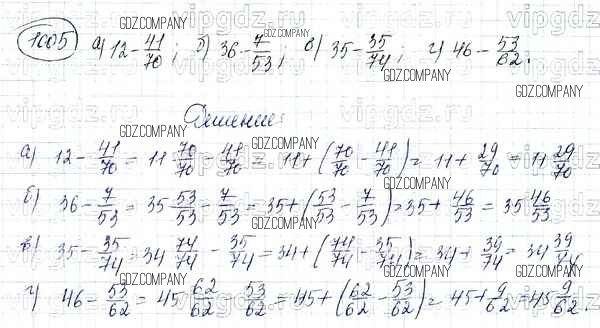 1005 а) 12 - 41/70; б) 36 - 7/53; в) 35 - 35/74; г) 46 - 53/62.
Решение:
а) 12 - 41/70 = 11 70/70 - 41/70 = 11 + (70/70 - 41/70) = 11 + 29/70 = 11 29/70
б) 36 - 7/53 = 35 53/53 - 7/53 = 35 + (53/53 - 7/53) = 35 + 46/53 = 35 46/53
в) 35 - 35/74 = 34 74/74 - 35/74 = 34 + (74/74 - 35/74) = 34 + 39/74 = 34 39/74
г) 46 - 53/62 = 45 62/62 - 53/62 = 45 + (62/62 - 53/62) = 45 + 9/62 = 45 9/62.